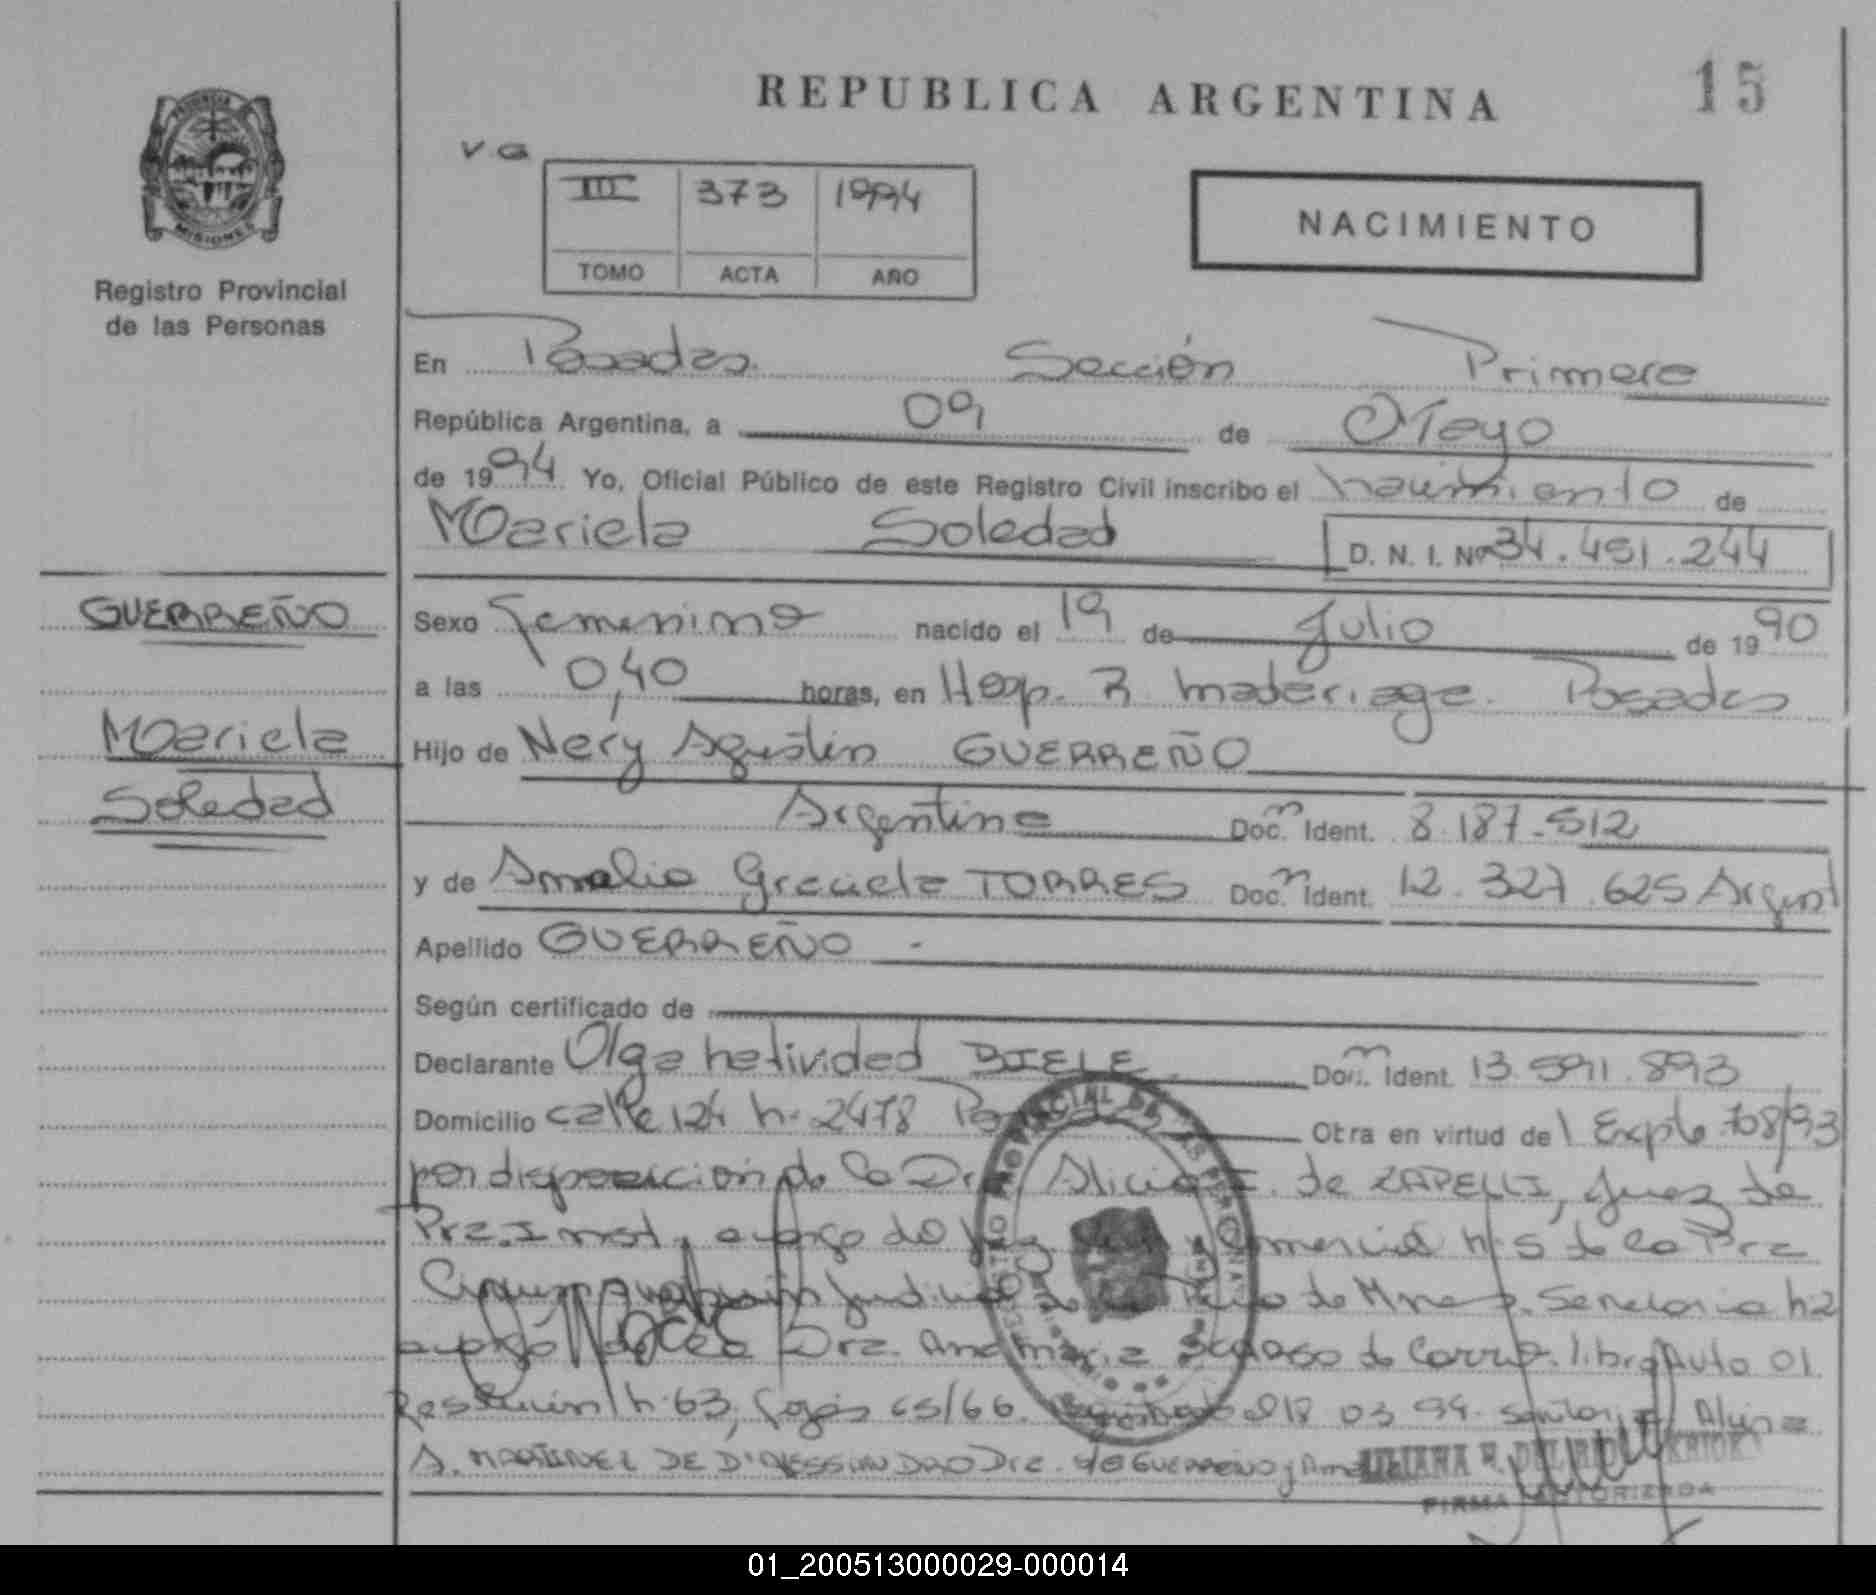 REPUBLICA ARGENTINA
15
PROVINCIA
MISIONES
Registro Provincial
de las Personas
V.G
III 373 1994
TOMO ACTA AÑO
NACIMIENTO
En Posadas Sección Primera
República Argentina, a 09 de Mayo
de 1994 Yo, Oficial Público de este Registro Civil inscribo el nacimiento de
Mariela Soledad D. N. I. Nº 34.451.244
GUERREÑO
Mariela
Soledad
Sexo Femenino nacido el 19 de Julio de 1990
a las 0,40 horas, en Hosp. R. Madariaga. Posadas
Hijo de Nery Agustín GUERREÑO
Argentino Doc. Ident. 8.187.512
y de Amalia Graciela TORRES Doc. Ident. 12.327.625 Argent
Apellido GUERREÑO
Según certificado de
Declarante Olga Natividad BIELE Doc. Ident. 13.591.893
Domicilio calle 124 N. 2478 Otra en virtud del Expte 708/93
por disposición de la Dra Alicia de ZAPELLI, Juez de
Pra. Inst. a cargo del y Comercial N. 5 de la Pra
Circunscripción Judicial de la de Mnes. Secretaria N 2
a cargo de la Dra. Ana María de libro Auto 01.
Resolución N. 63, fojas 65/66. 18 03 94.
A. MARTINEZ DE D'ALESSANDRO Dice. GUERREÑO y
FIRMA AUTORIZADA
01_200513000029-000014